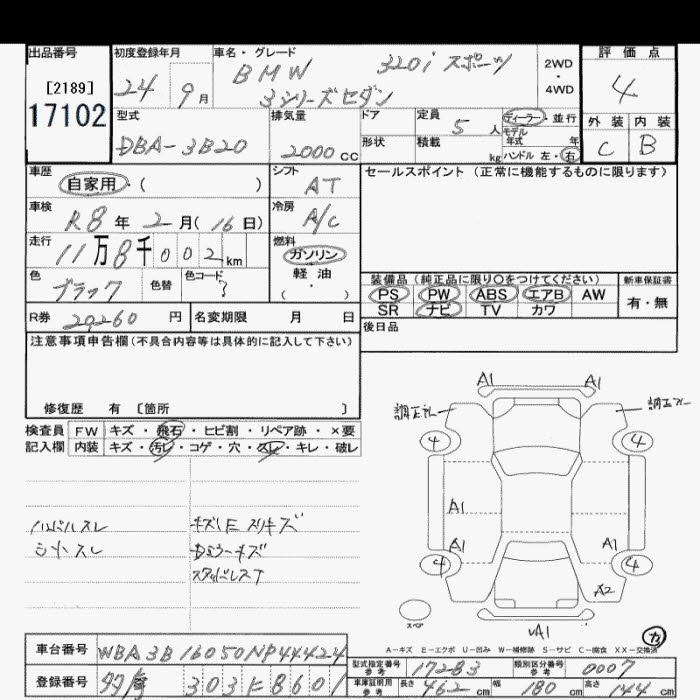 出品番号
[2189]
17102
初度登録年月
24 9月
車名・グレード
BMW 320i スポーツ
3シリーズセダン
2WD
・
4WD
評価点
4
外装 内装
C B
型式
DBA-3B20
排気量
2000cc
ドア
形状
定員
5人
積載
kg
ディーラー・並行
モデル
年式 年
ハンドル 左・右
車歴
自家用・( )
シフト
AT
セールスポイント(正常に機能するものに限ります)
車検
R8年2月(16日)
冷房
A/C
走行
11万8千002km
燃料
ガソリン
軽油
( ・ )
色
ブラック
色替
色コード
?
装備品(純正品に限り○をつけてください)
PS PW ABS エアB AW
SR ナビ TV カワ
新車保証書
有・無
R券 20260円
名変期限 月 日
後日品
注意事項申告欄(不具合内容等は具体的に記入して下さい)
修復歴 有 〔箇所 〕
検査員
記入欄
FW キズ・飛石・ヒビ割・リペア跡・×要
内装 キズ・汚レ・コゲ・穴・スレ・キレ・破レ
ハンドルスレ
シートスレ
スタッドレスT
A1 A1
4 4
A1
A1 A1
4 4
A2
A1
スペア
A-キズ E-エクボ U-凹み W-補修跡 S-サビ C-腐食 XX-交換済
車台番号 WBA3B16050NP44424
登録番号 303 8601
型式指定番号
参考
17283
類別区分番号
参考
0007
車庫証明用
参考
長さ 462cm 幅 180cm 高さ 144cm